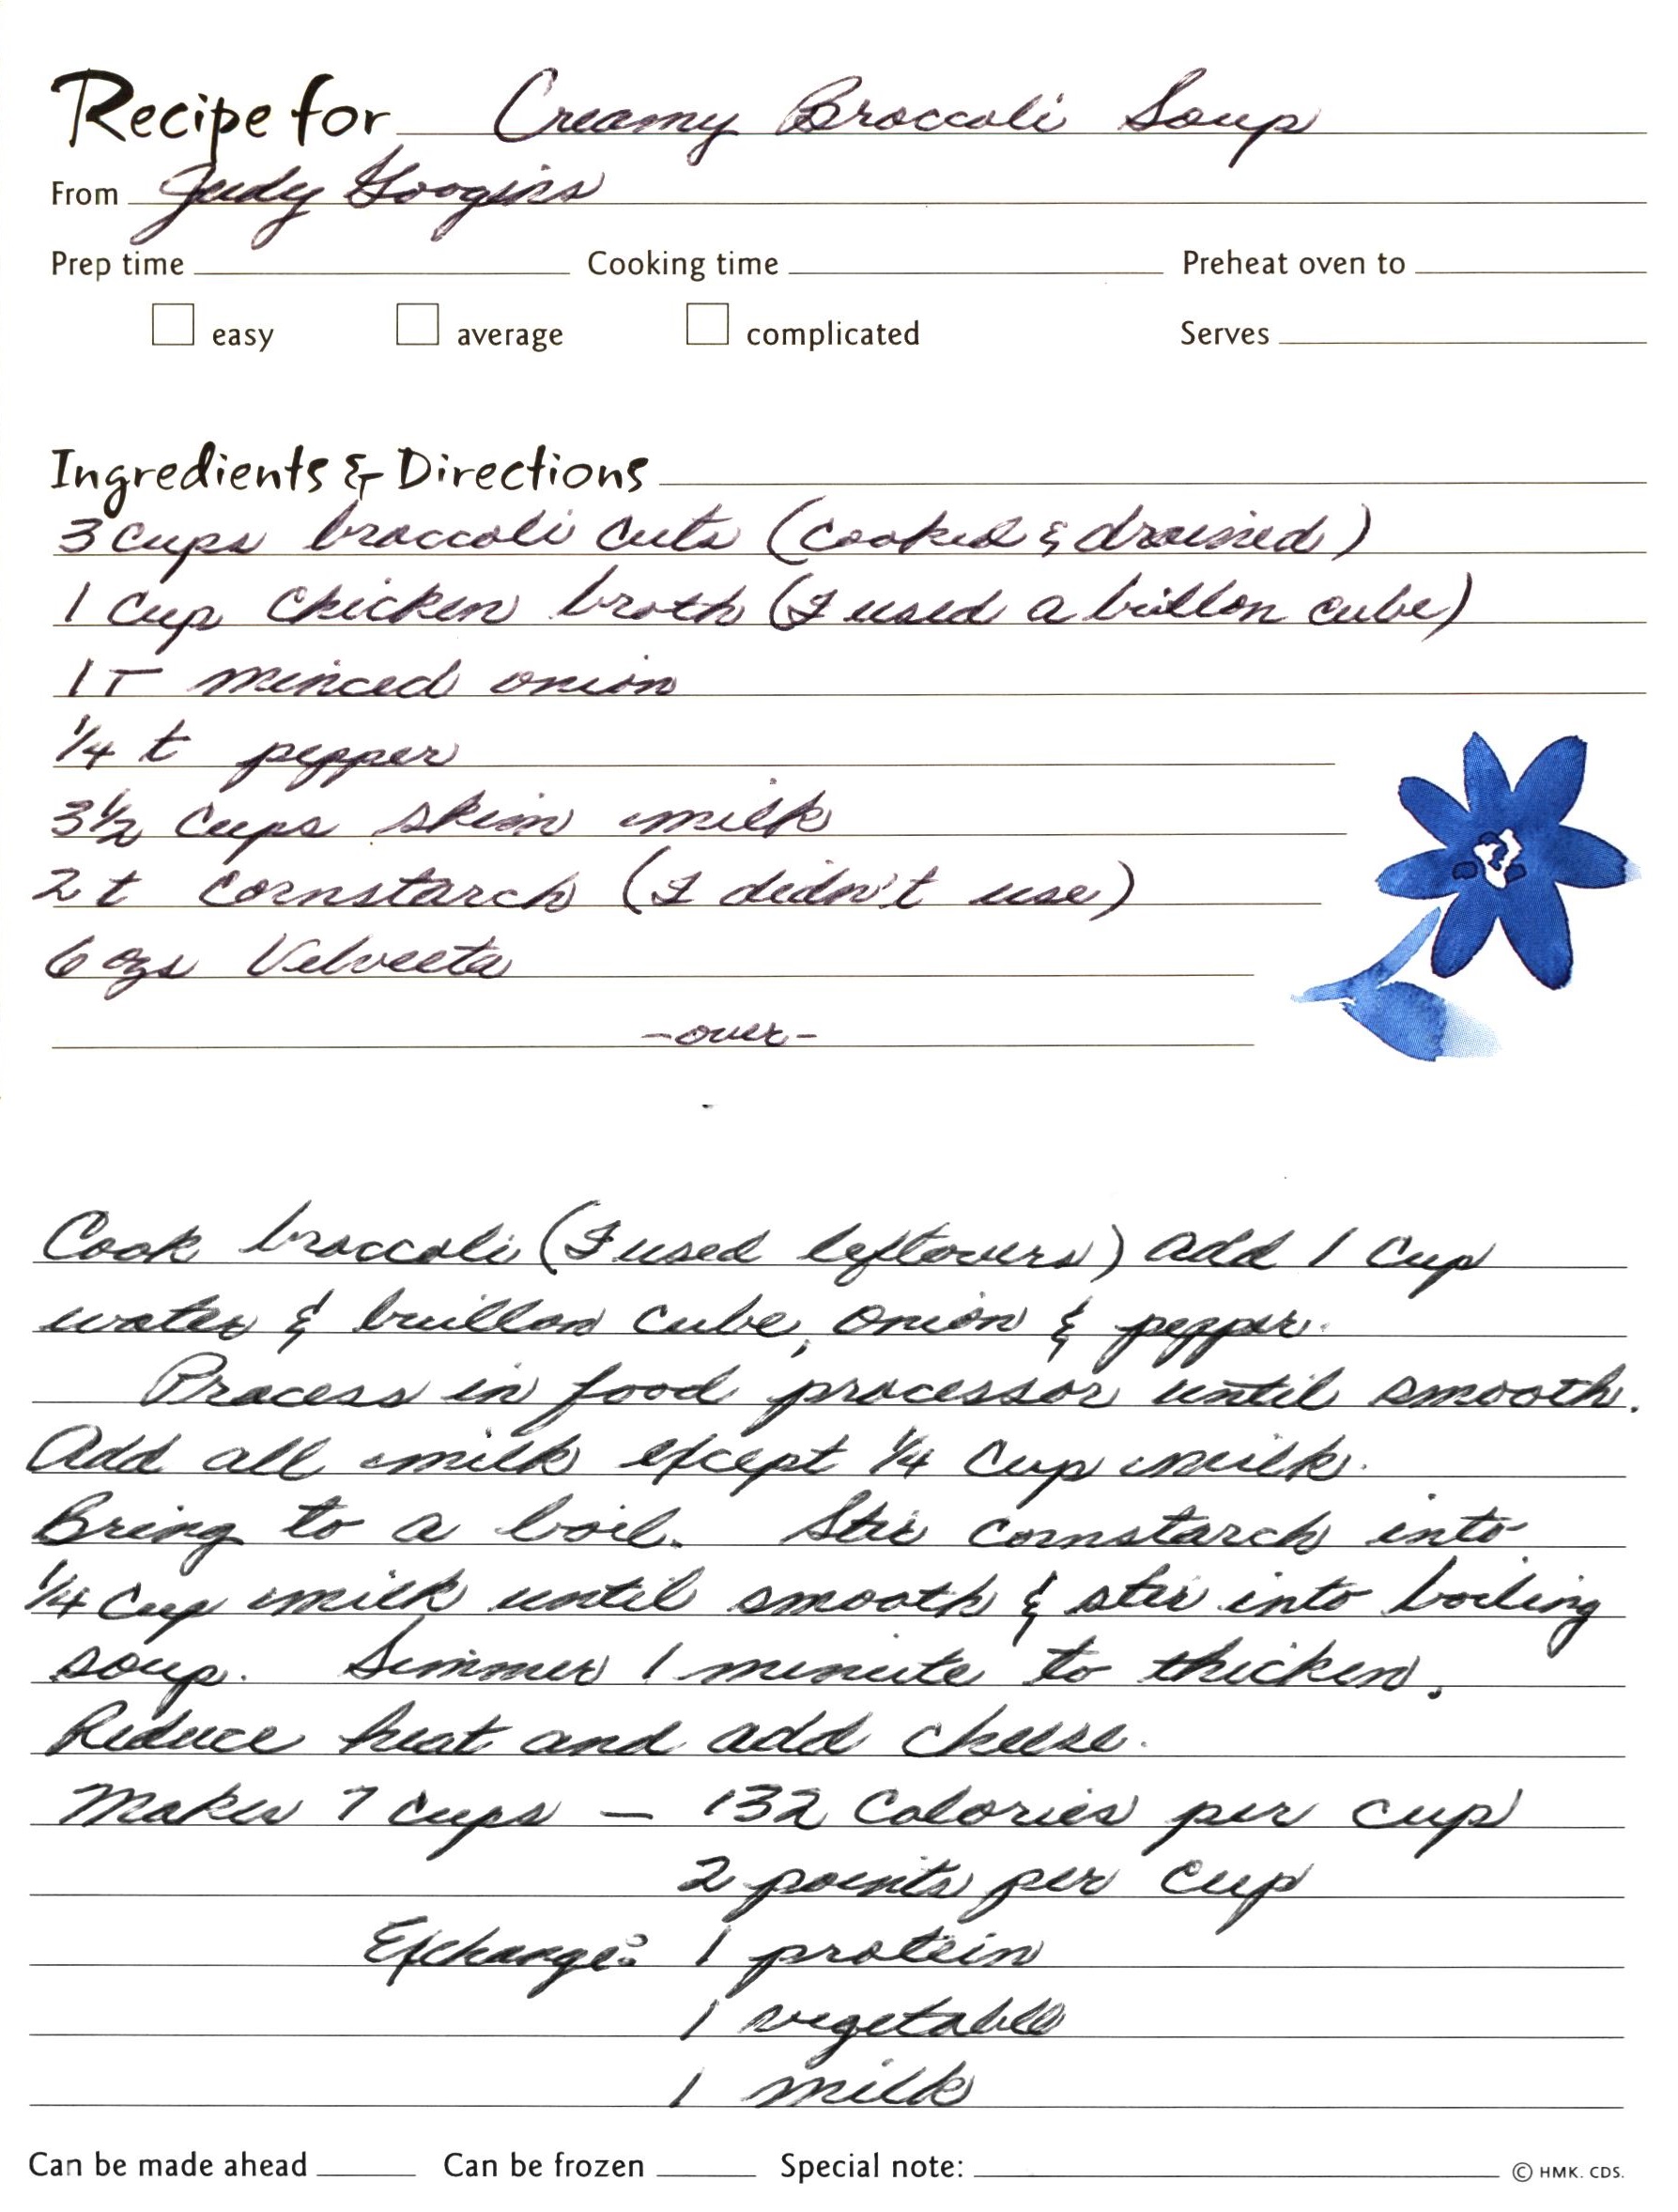 Recipe for Creamy Broccoli Soup
From Judy Googins
Prep time Cooking time Preheat oven to
easy average complicated Serves
Ingredients & Directions
3 cups broccoli cuts (cooked & drained)
1 cup chicken broth (I used a brillon cube)
1 T minced onion
1/4 t pepper
3 1/2 cups skim milk
2 t cornstarch (I didn't use)
6 ozs Velveeta
-over-
Cook broccoli (I used leftovers) add 1 cup
water & buillon cube, onion & pepper.
Process in food processor until smooth.
Add all milk except 1/4 cup milk.
Bring to a boil. Stir cornstarch into
1/4 cup milk until smooth & stir into boiling
soup. Simmer 1 minute to thicken.
Reduce heat and add cheese.
Makes 7 cups — 132 Calories per cup
2 points per cup
Exchange: 1 protein
1 vegetable
1 milk
Can be made ahead Can be frozen Special note: © HMK. CDS.